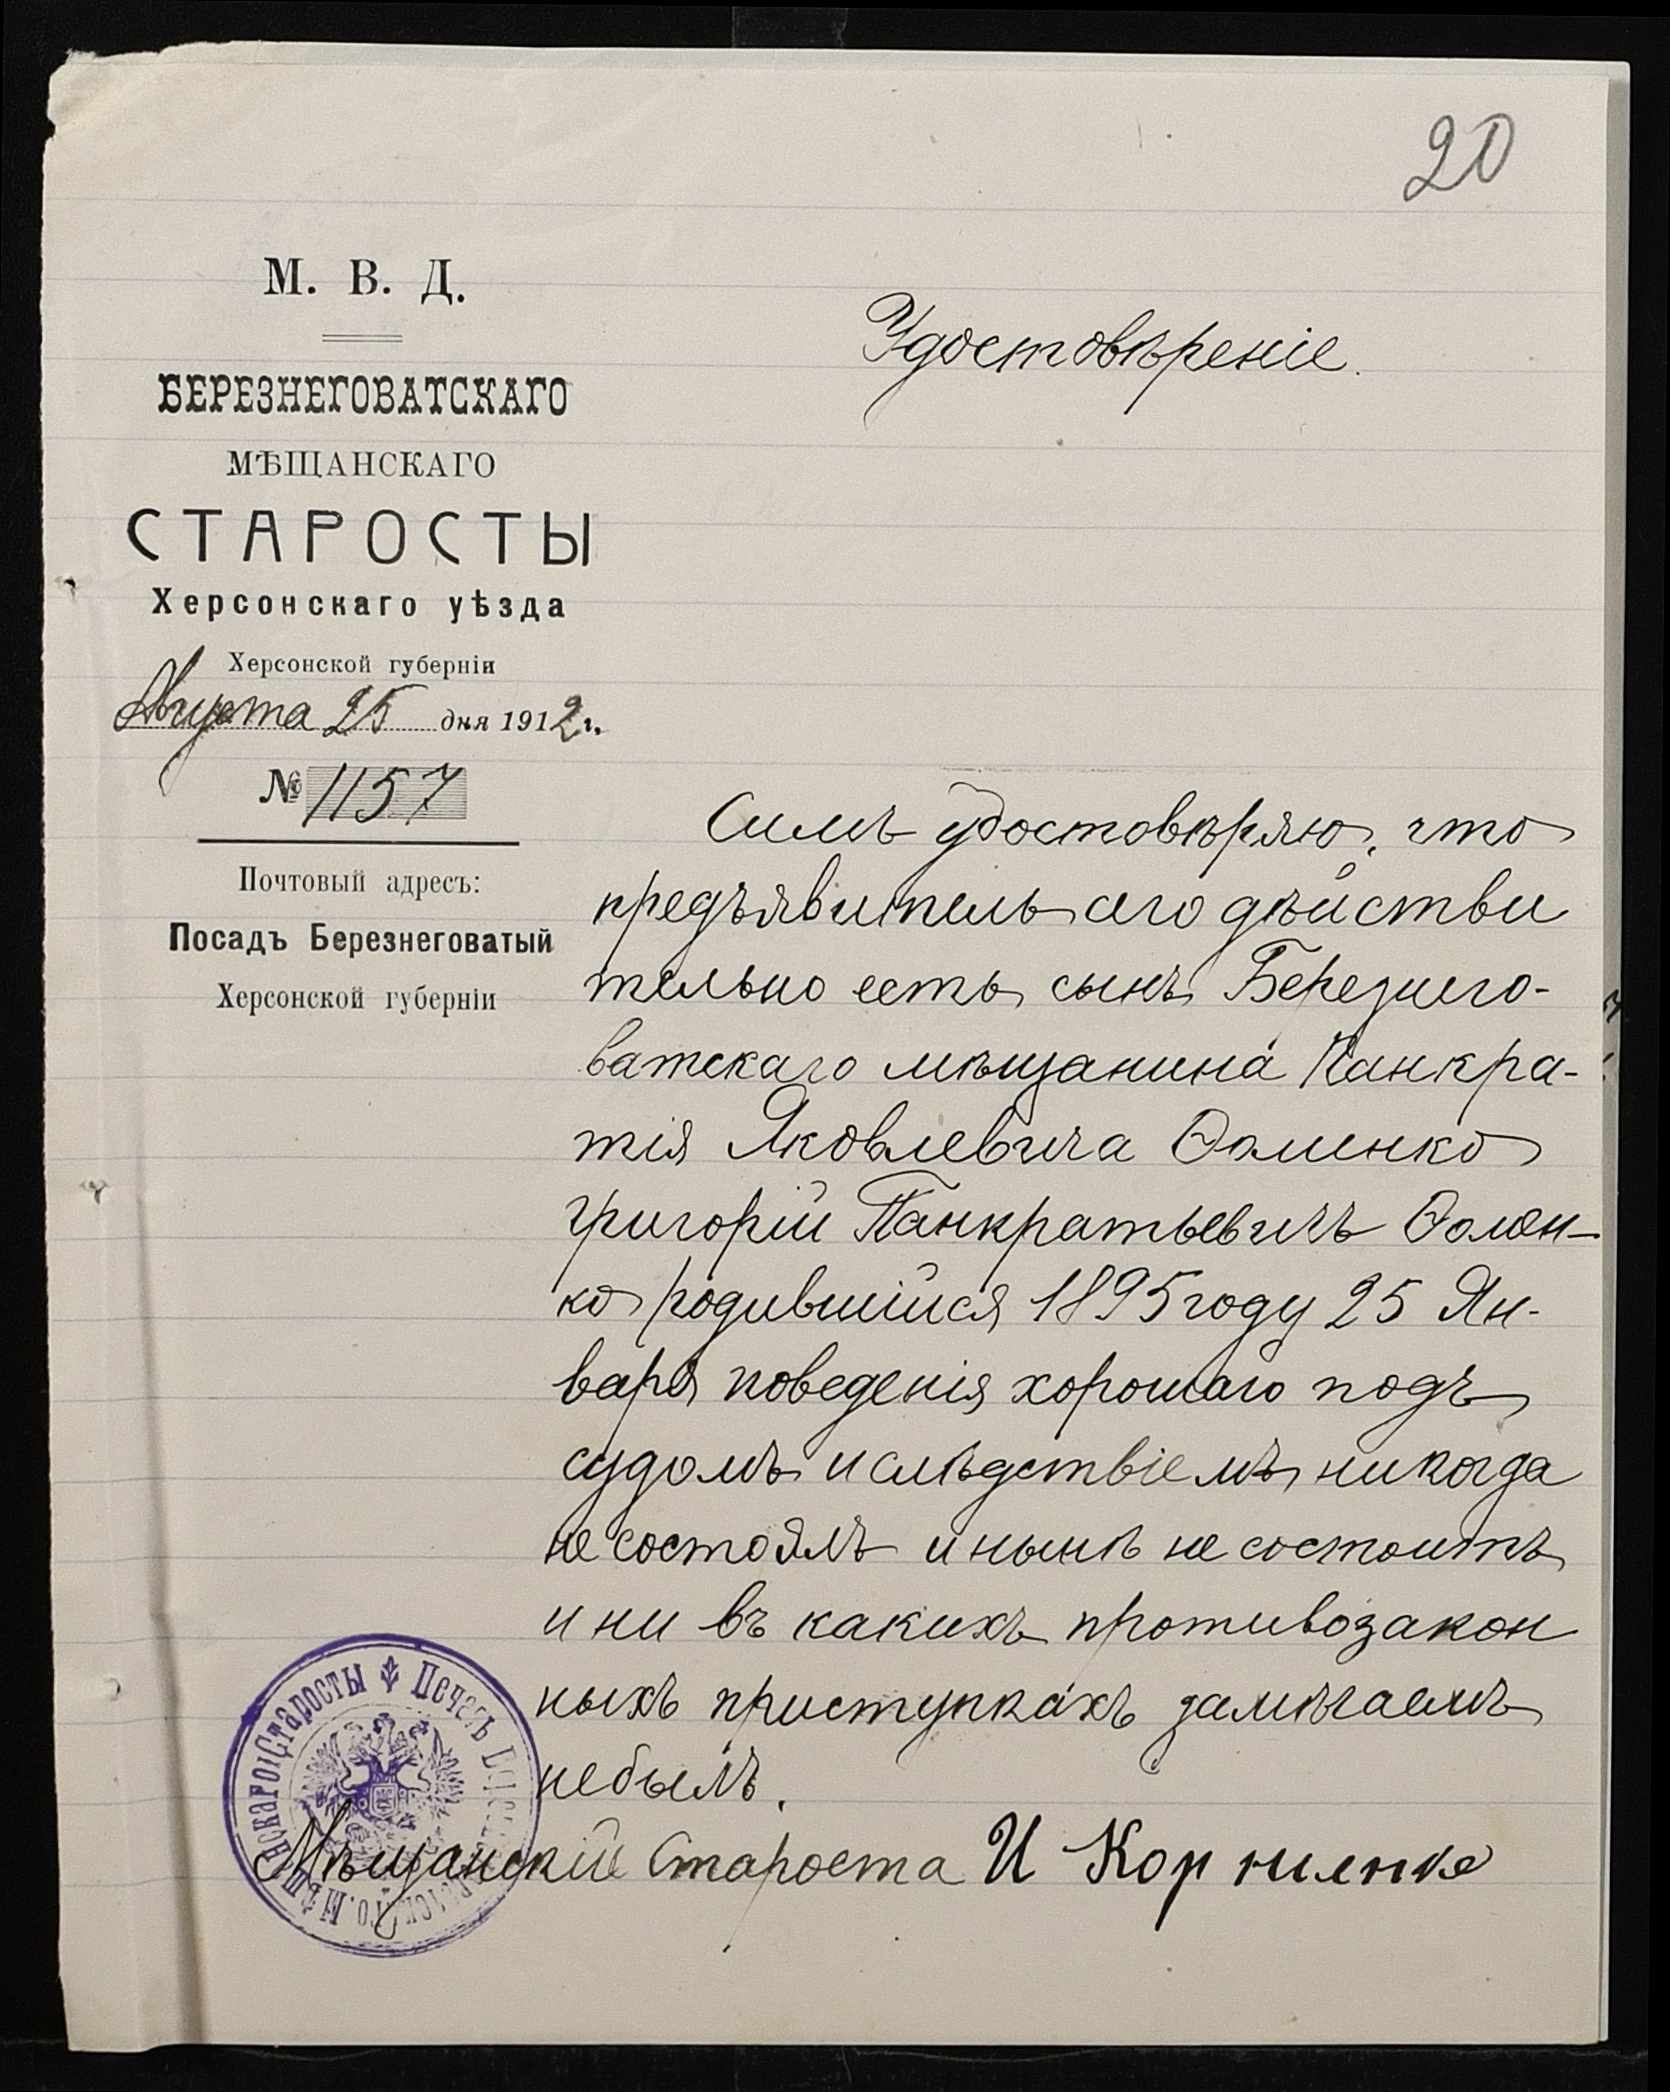 20
М. В. Д.
БЕРЕЗНЕГОВАТСКАГО
МѢЩАНСКАГО
СТАРОСТЫ
Херсонскаго уѣзда
Херсонской губерніи
Августа 25 дня 1912 г.
№ 1157
Почтовый адресъ:
Посадъ Березнеговатый
Херсонской губерніи
Удостовѣреніе.
Симъ удостовѣряю, что
предъявитель сего дѣйстви
тельно есть сынъ Березнего-
ватскаго мѣщанина Панкра-
тія Яковлевича Ѳоменко
Григорій Панкратьевичъ Ѳомен-
ко родившійся 1895 году 25 Ян-
варя поведенія хорошаго подъ
судомъ и слѣдствіемъ никогда
не состоялъ и нынѣ не состоитъ
и ни въ какихъ противозакон
ныхъ приступкахъ замѣчаемъ
небылъ.
Мѣщанскій Староста И Корниленко
Печать
Мѣщанскаго Старосты